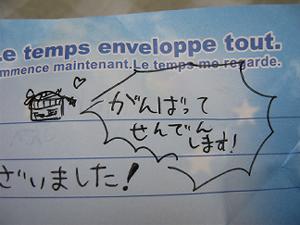 Le temps enveloppe tout.
ommence maintenant.Le temps me regarde.
がんばって
せんでん
します!
ざいました!